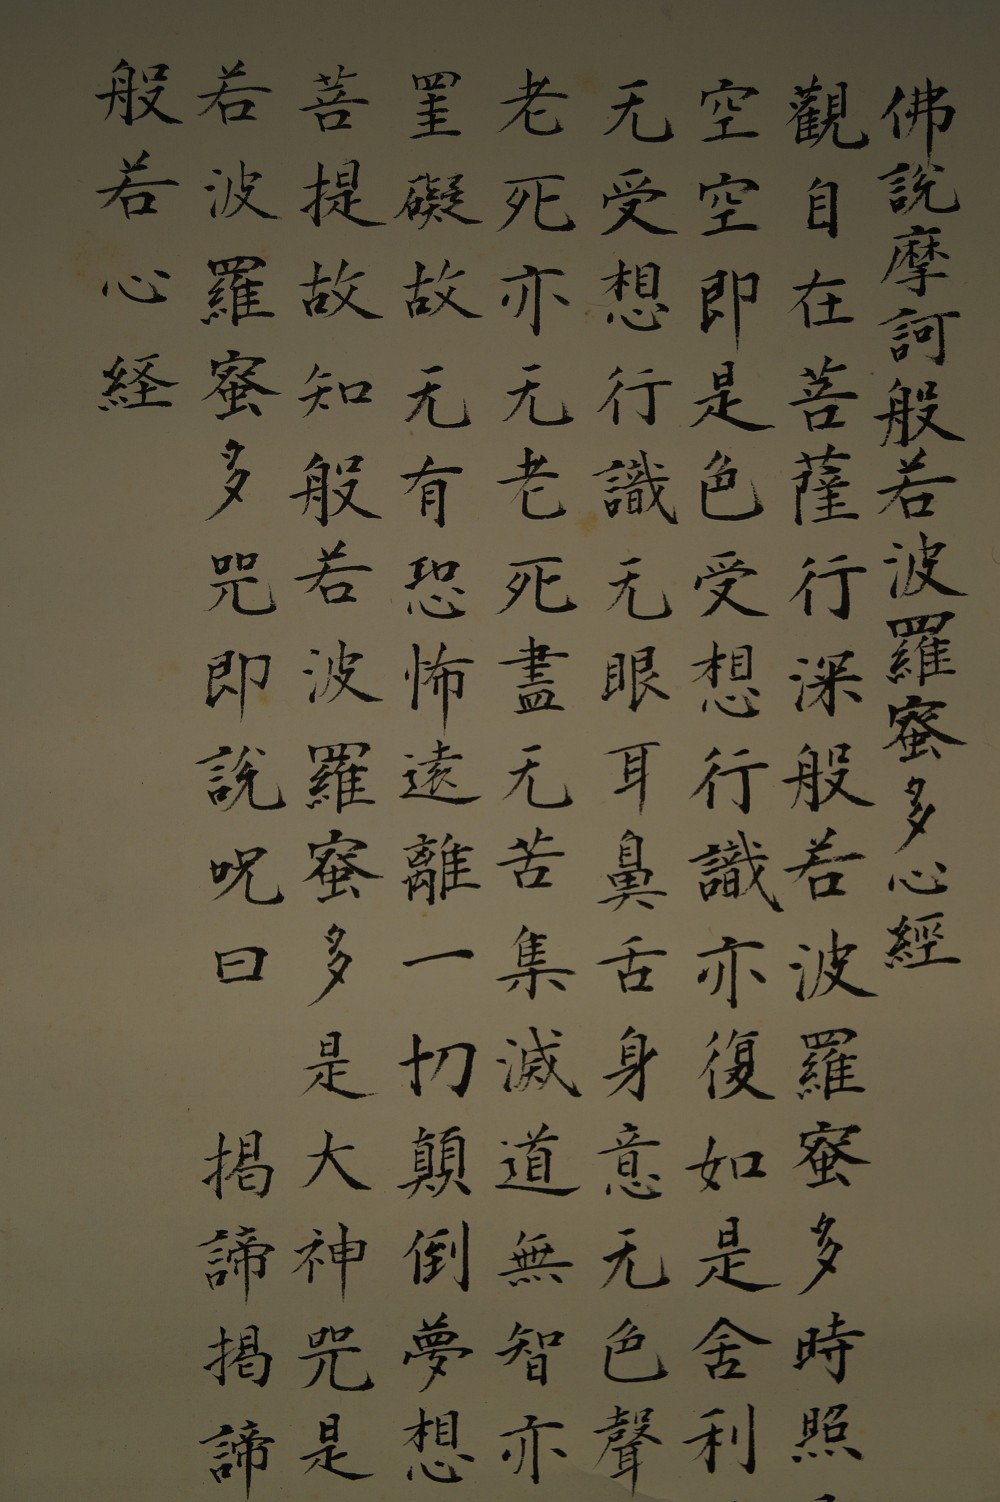 佛說摩訶般若波羅蜜多心經
觀自在菩薩行深般若波羅蜜多時照
空空即是色受想行識亦復如是舍利
无受想行識无眼耳鼻舌身意无色聲
老死亦无老死盡无苦集滅道無智亦
罣礙故无有恐怖遠離一切顛倒夢想
菩提故知般若波羅蜜多是大神咒是
若波羅蜜多咒即說呪曰 揭諦揭諦
般若心経